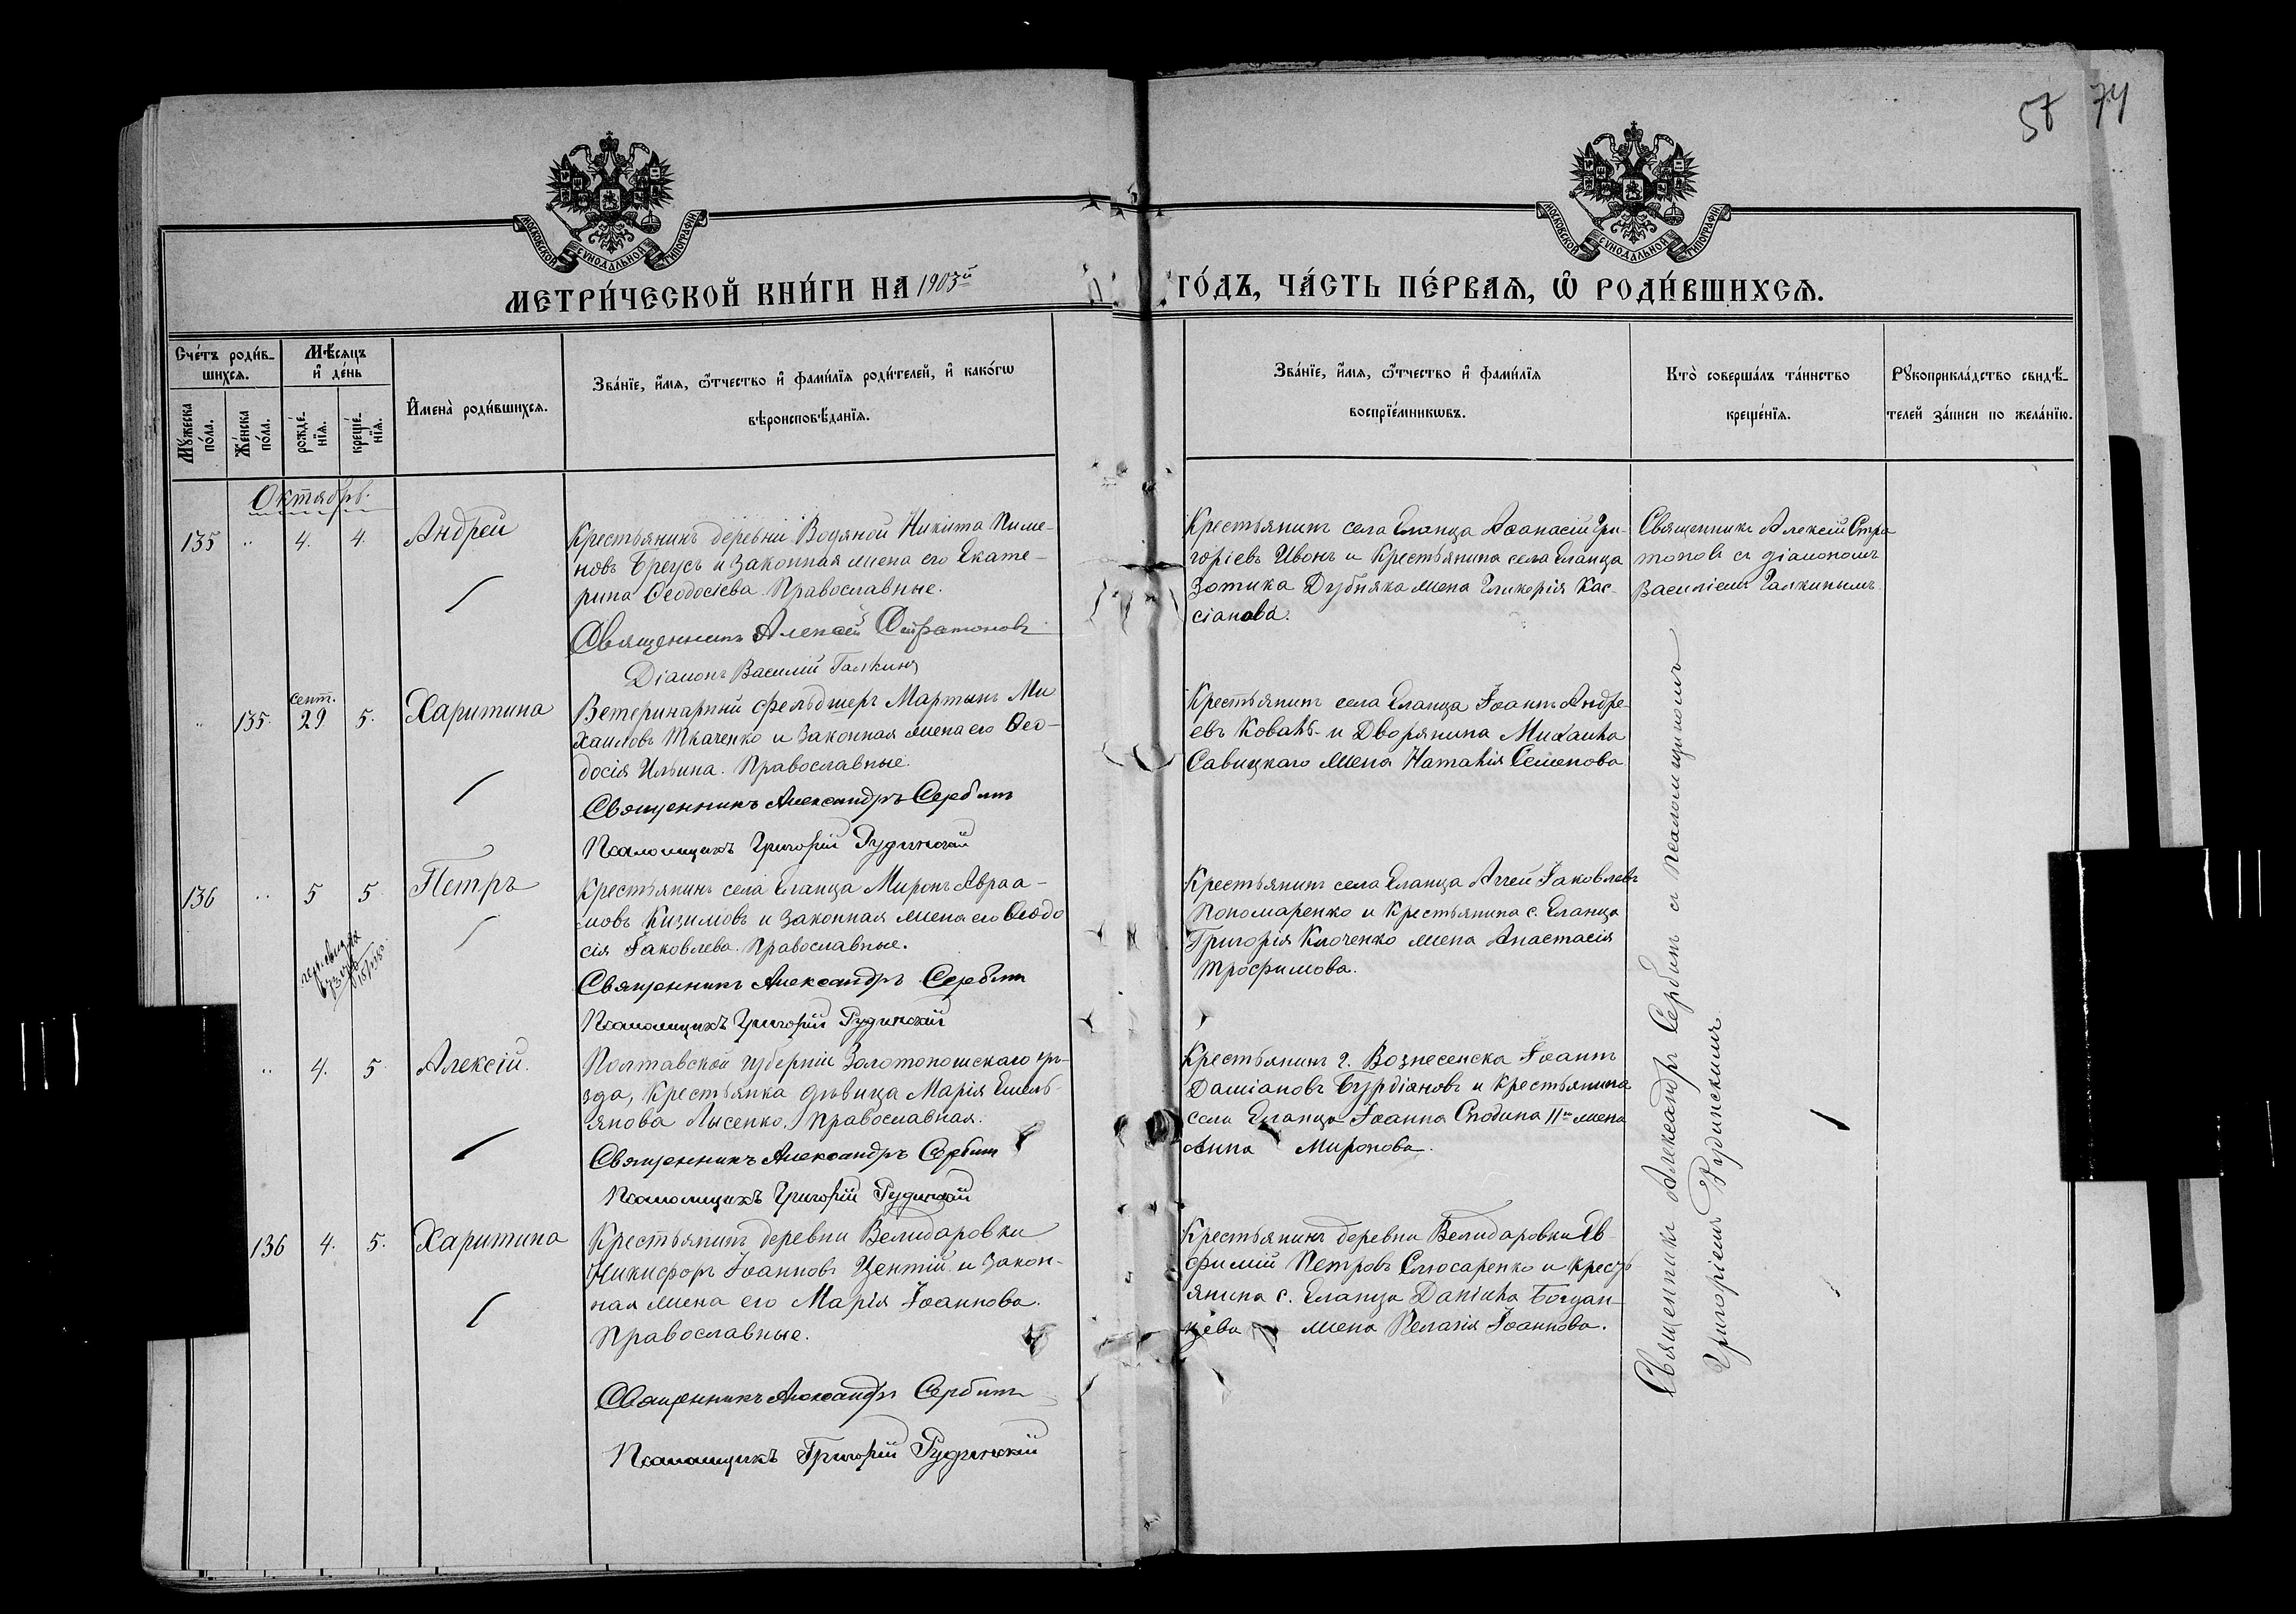 57 74
МОСКОВСКОЙ СѴНОДАЛЬНОЙ ТИПОГРАФІИ
МОСКОВСКОЙ СѴНОДАЛЬНОЙ ТИПОГРАФІИ
МЕТРИ́ЧЕСКОЙ КНИ́ГИ НА 1903й ГО́ДЪ, ЧА́СТЬ ПЕ́РВАѦ, Ѡ҆ РОДИ́ВШИХСѦ.
Сче́тъ роди́в-
шихсѧ.
Мꙋ́жеска
по́ла.
Же́нска
по́ла.
Мѣ́сѧцъ
и҆ де́нь
рожде́-
нїѧ.
креще́-
нїѧ.
И҆мена̀ роди́вшихсѧ.
Зва́нїе, и҆́мѧ, ѻ҆́тчество и҆ фамилїѧ роди́телей, и҆ како́гѡ
вѣроисповѣ́данїѧ.
Зва́нїе, и҆́мѧ, ѻ҆́тчество и҆ фами́лїѧ
воспрїе́мникѡвъ.
Кто̀ соверша́лъ та́инство
креще́нїѧ.
Рꙋкоприкла́дство свидѣ́-
телей за́писи по жела́нїю.
Октябрь.
135 " 4. 4. Андрей
Крестьянинъ деревни Водяной Никита Пиме-
новъ Брегусь и законная жена его Екате-
рина Ѳеодосіева. Православные.
Священникъ Алексей Стратоновъ
Діаконъ Василій Галкинъ
Крестьянинъ села Еланца Аѳанасій Гри-
горіевъ Ивонъ и Крестьянина села Еланца
Зотика Дубняка жена Гликерія Кас-
сіанова.
Священникъ Алексій Стра
тоновъ съ діакономъ
Василіемъ Галкинымъ.
" 135. сент. 29 5. Харитина
Ветеринарный фельдшеръ Мартынъ Ми
хаиловъ Ткаченко и законная жена его Ѳео-
досія Ильина. Православные.
Священникъ Александръ Сербинъ
Псаломщикъ Григорій Рудинскій
Крестьянинъ села Еланца Іоаннъ Андре-
евъ Коваль и Дворянина Михаила
Савицкаго жена Наталія Семенова
136 " 5 5. Петръ
Крестьянинъ села Еланца Миронъ Авраа-
мовъ Кизимовъ и законная жена его Ѳеодо
сія Іаковлева. Православные.
Священникъ Александръ Сербинъ
Псаломщикъ Григорій Рудинскій
Крестьянинъ села Еланца Аггей Іаковлевъ
Пономаренко и Крестьянина с. Еланца
Григорія Клоченко жена Анастасія
Трофимова.
" 4. 5 Алексій.
Полтавской губерніи Золотоношскаго уѣ-
зда, Крестьянка дѣвица Марія Емель-
янова Лысенко, Православная.
Священникъ Александръ Сербинъ
Псаломщикъ Григорій Рудинскій
Крестьянинъ г. Вознесенска Іоаннъ
Даміановъ Бурдіановъ и Крестьянина
села Еланца Іоанна Сподина IIго жена
Анна Миронова.
136 4. 5. Харитина
Крестьянинъ деревни Велидаровки
Никифоръ Іоанновъ Центій и закон-
ная жена его Марія Іоаннова.
Православные.
Священникъ Александръ Сербинъ
Псаломщикъ Григорій Рудинскій
Крестьянинъ деревни Велидаровки Ев-
фимій Петровъ Слюсаренко и Кресть
янина с. Еланца Даніила Богдан-
цева жена Пелагія Іоаннова.
Священникъ Александръ Сербинъ съ псаломщикомъ
Григоріемъ Рудинскимъ.